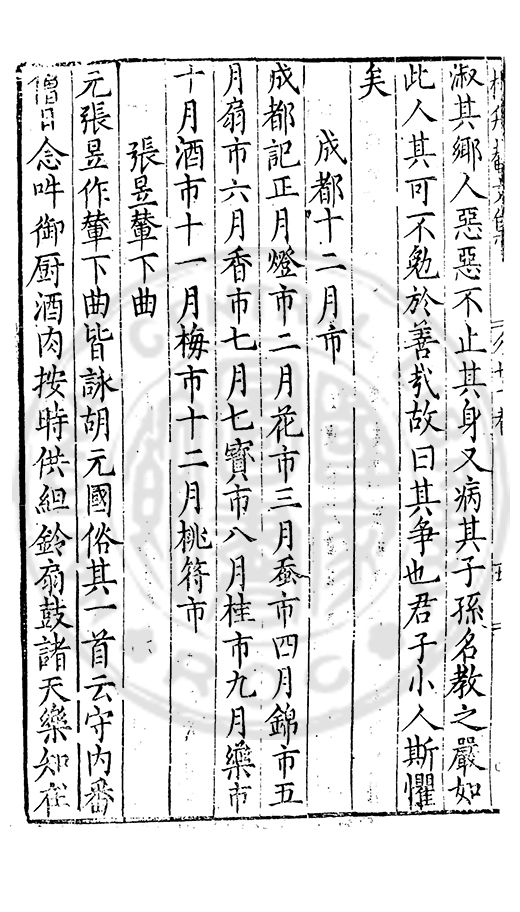 淑其鄉人惡惡不止其身又病其子孫名教之嚴如
此人其可不勉於善哉故曰其爭也君子小人斯懼
矣
成都十二月市
成都記正月燈市二月花市三月蚕市四月錦市五
月扇市六月香市七月七寶市八月桂市九月藥市
十月酒市十一月梅市十二月桃符市
張昱輦下曲
元張昱作輦下曲皆詠胡元國俗其一首云守内番
僧日念吽御厨酒肉按時供組鈴扇鼓諸天樂知在